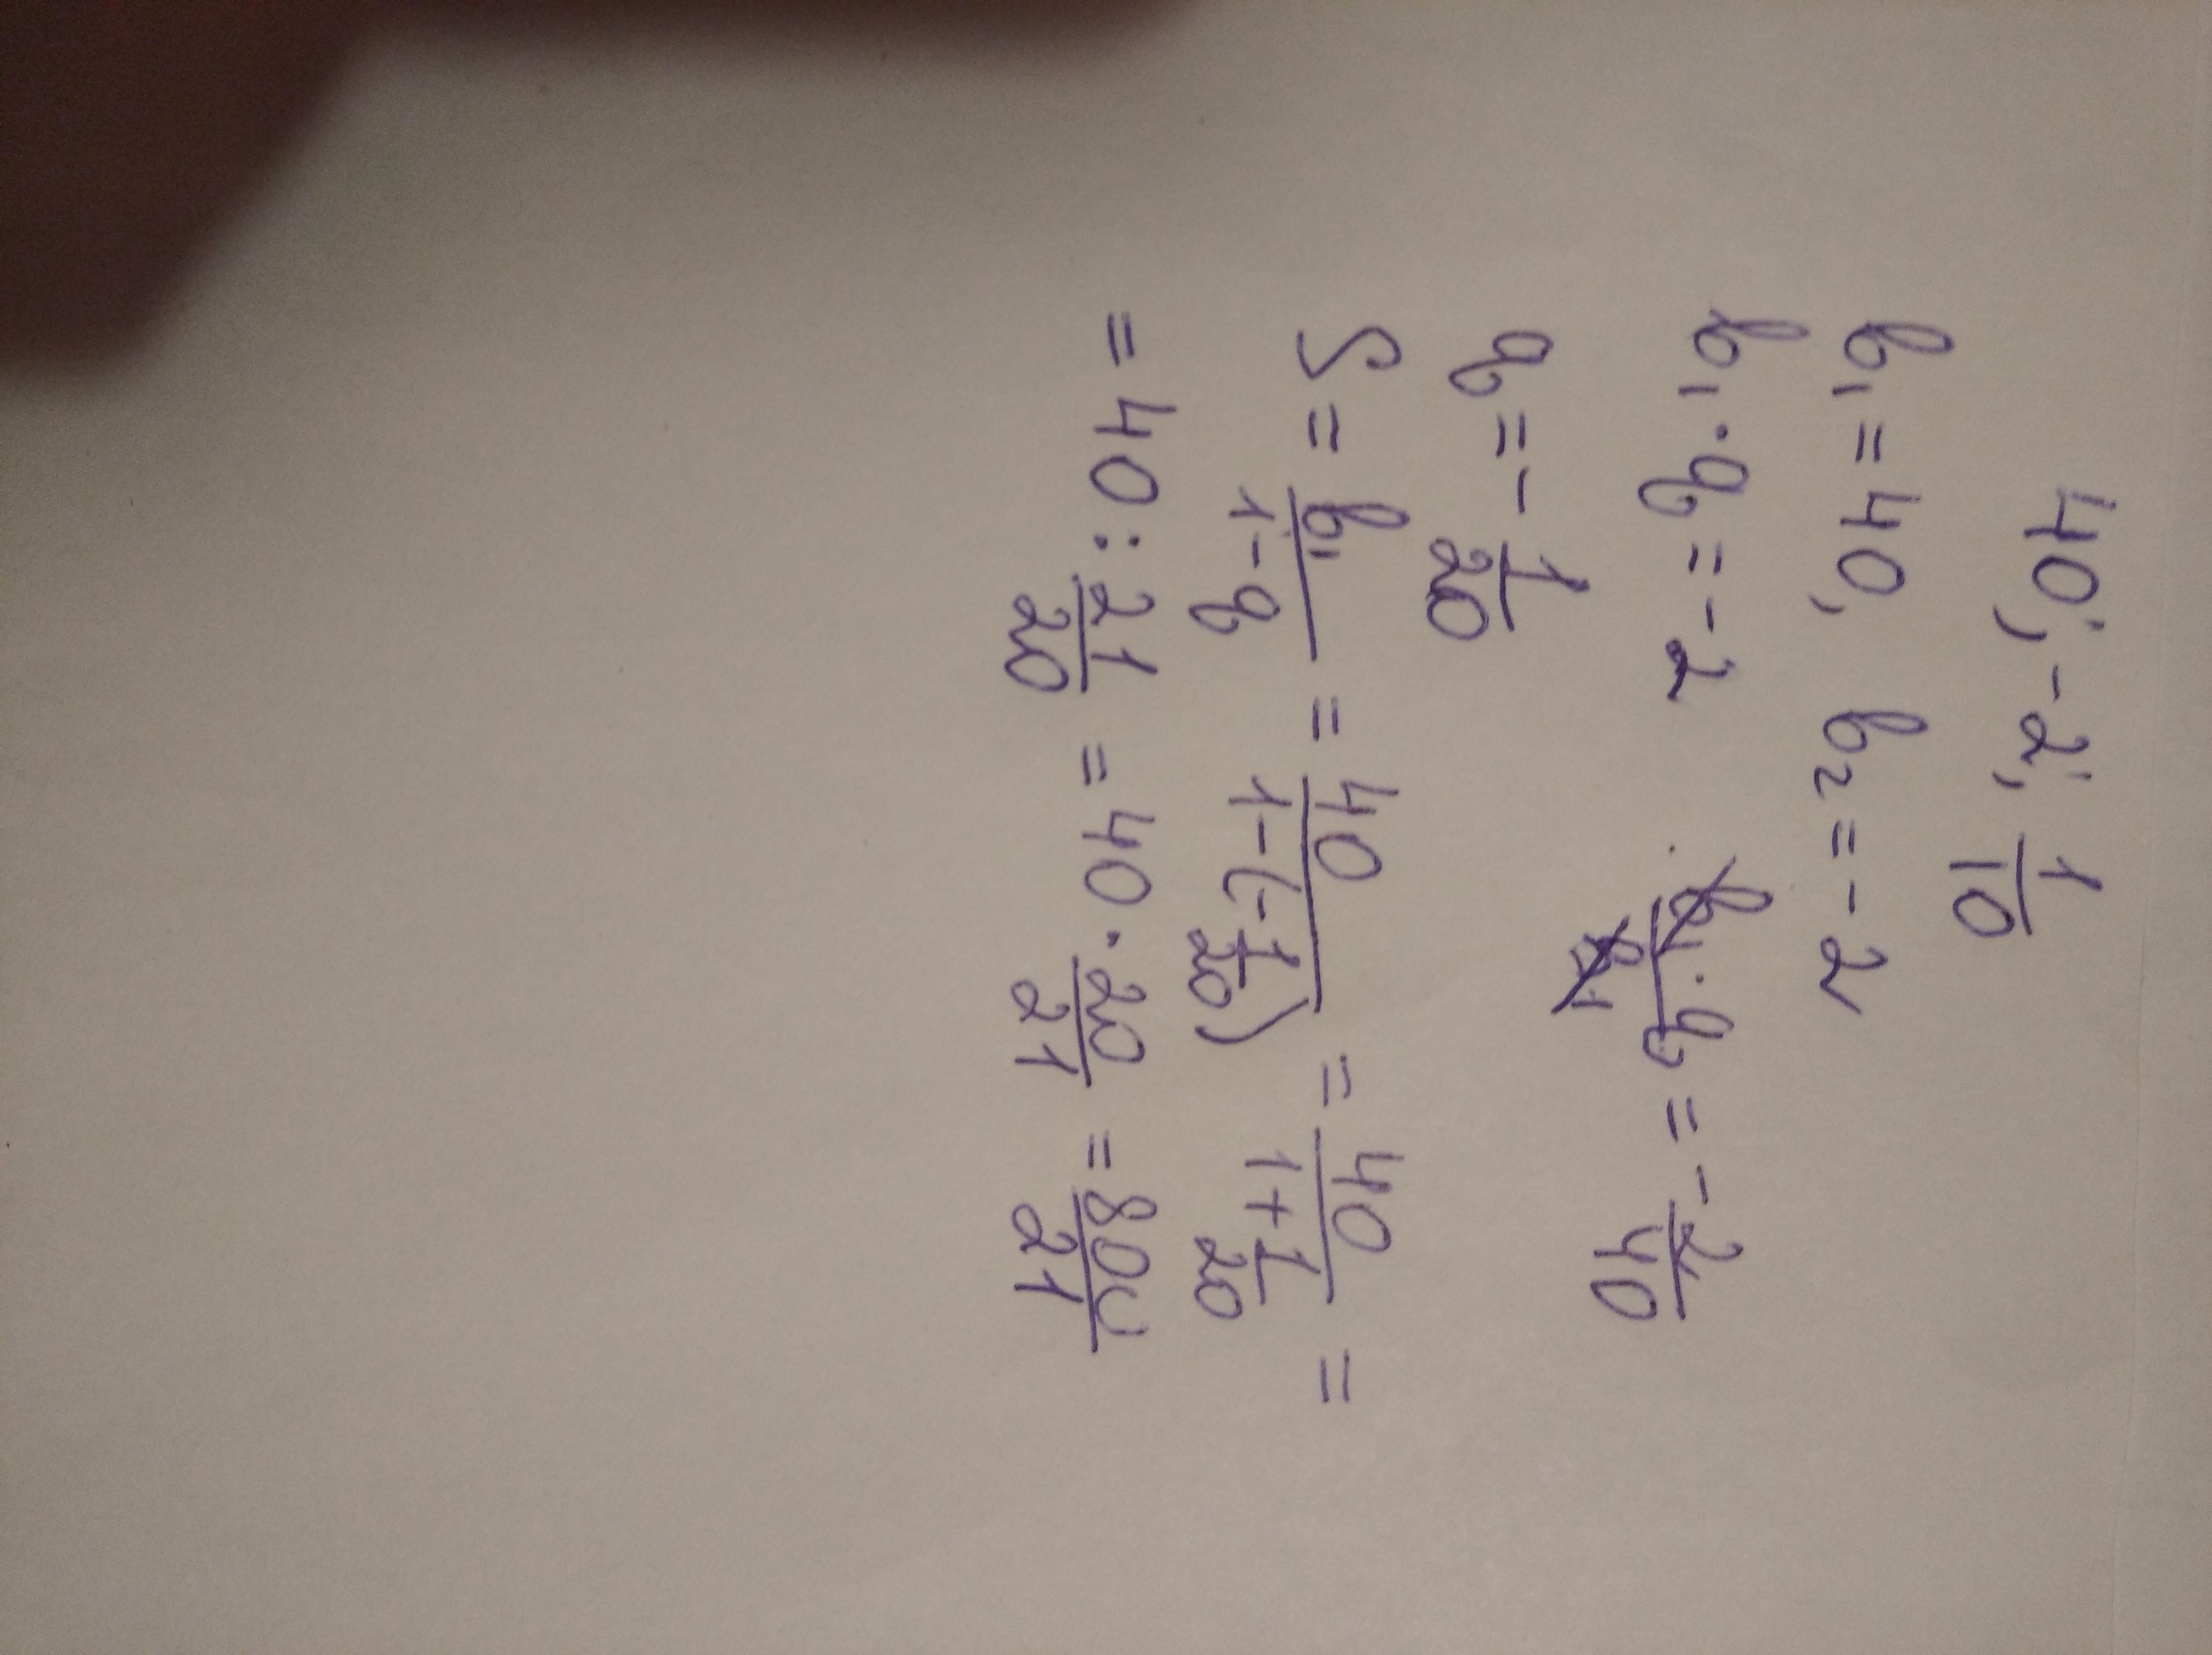 40; -2; 1/10
b₁ = 40, b₂ = -2
b₁ · q = -2 b₁ · q / b₁ = - 2/40
q = - 1/20
S = b₁/(1-q) = 40/(1-(-1/20)) = 40/(1+1/20) =
= 40 : 21/20 = 40 · 20/21 = 800/21